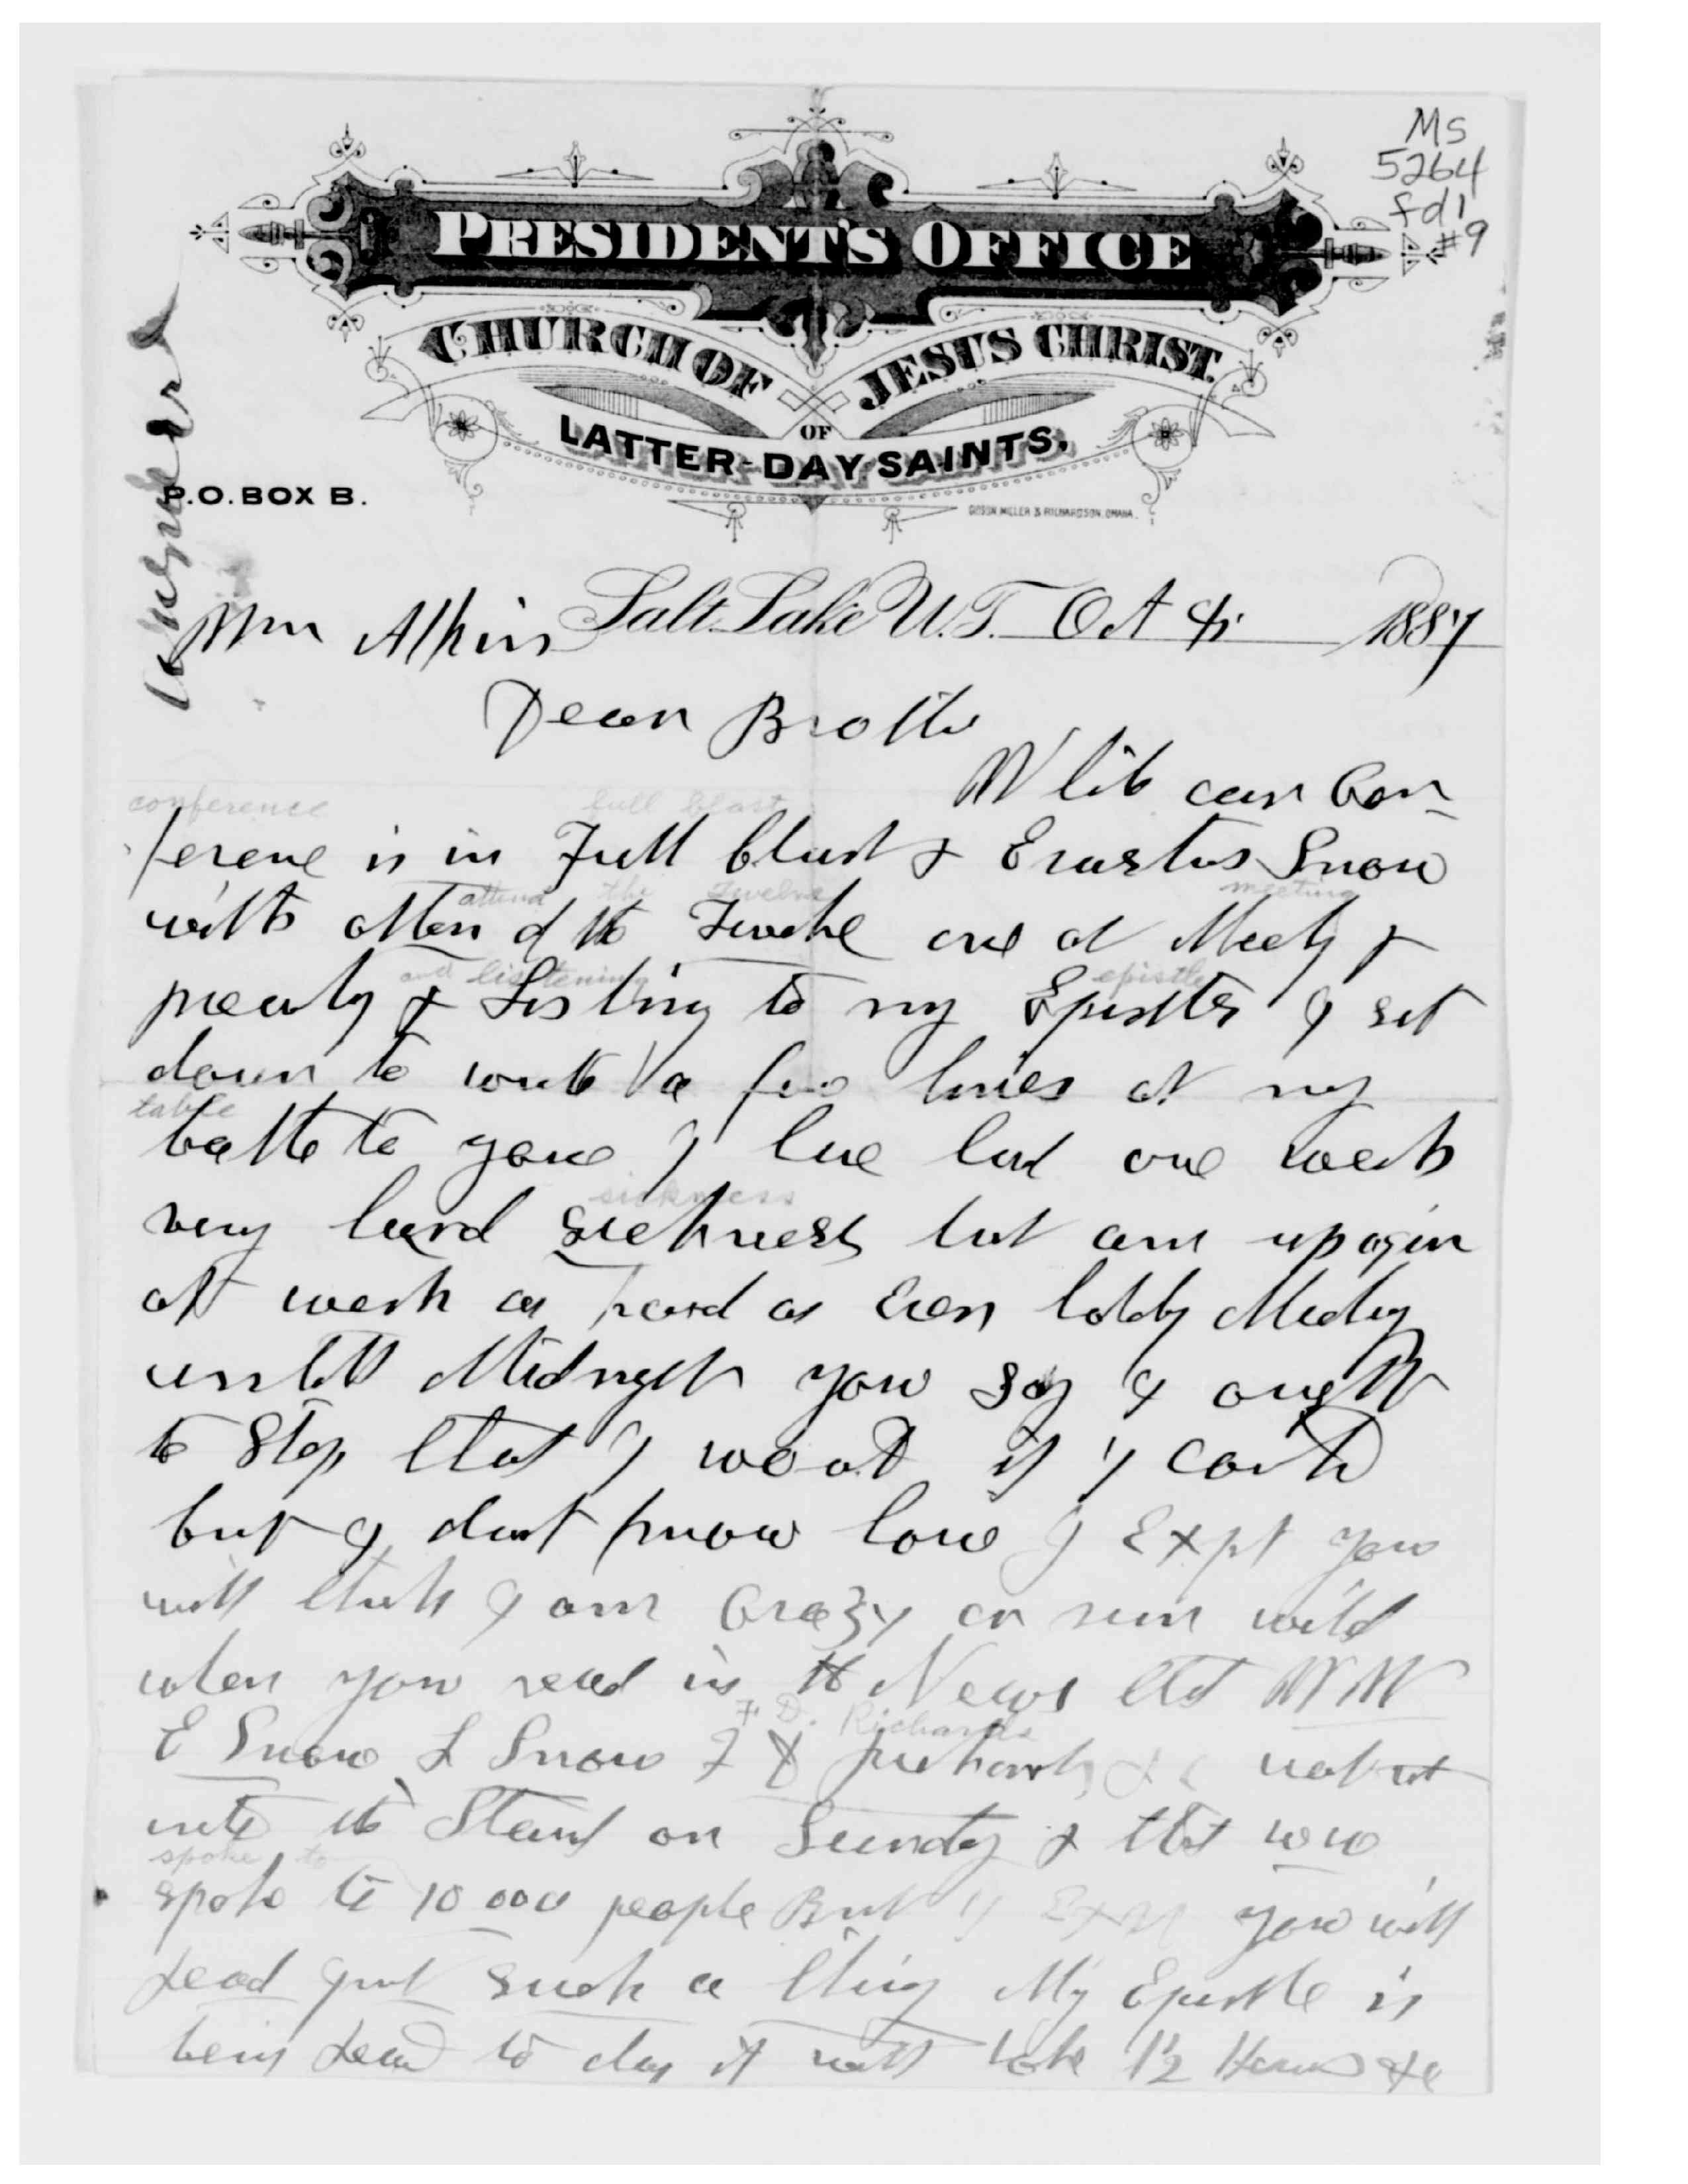 Ms
5264
fd 1
#9
PRESIDENT'S OFFICE
CHURCH OF JESUS CHRIST
OF
LATTER-DAY SAINTS,
P.O. BOX B.
Salt Lake U.T. Oct 8 1887
Wm Atkin
Dear Brother
While our Con
conference full blast
ference is in Full blast & Erastus Snow
attend the Twelve meeting
with of the Twelve and at Meeting &
and listening epistle
& Listing to my Epistle I set
down to write a few lines at my
table
table to you I have had one week
sickness
very hard sickness but am up again
at work as hard as Ever holdg Meeting
until Midnight you say I ought
to Stop that I would if I could
but I dont know how I Expt you
will think I am Crazy or run wild
when you read in the News that WW
F. D. Richards
E Snow L Snow F D Richards &c
into the Stand on Sunday & that WW
spoke to
spoke to 10 000 people But I Expt you will
read just such a thing My Epistle is
being read to day it will take 1½ Hours &c